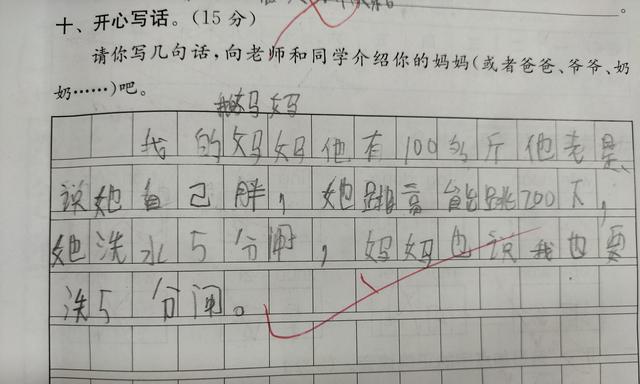 十、开心写话。(15 分)
请你写几句话,向老师和同学介绍你的妈妈(或者爸爸、爷爷、奶
奶……)吧。
我妈妈
我的妈妈他有100多斤他老是
说她自己胖,她跳高能跳200下,
她洗水5分闹,妈妈也说我也要
洗5分闹。